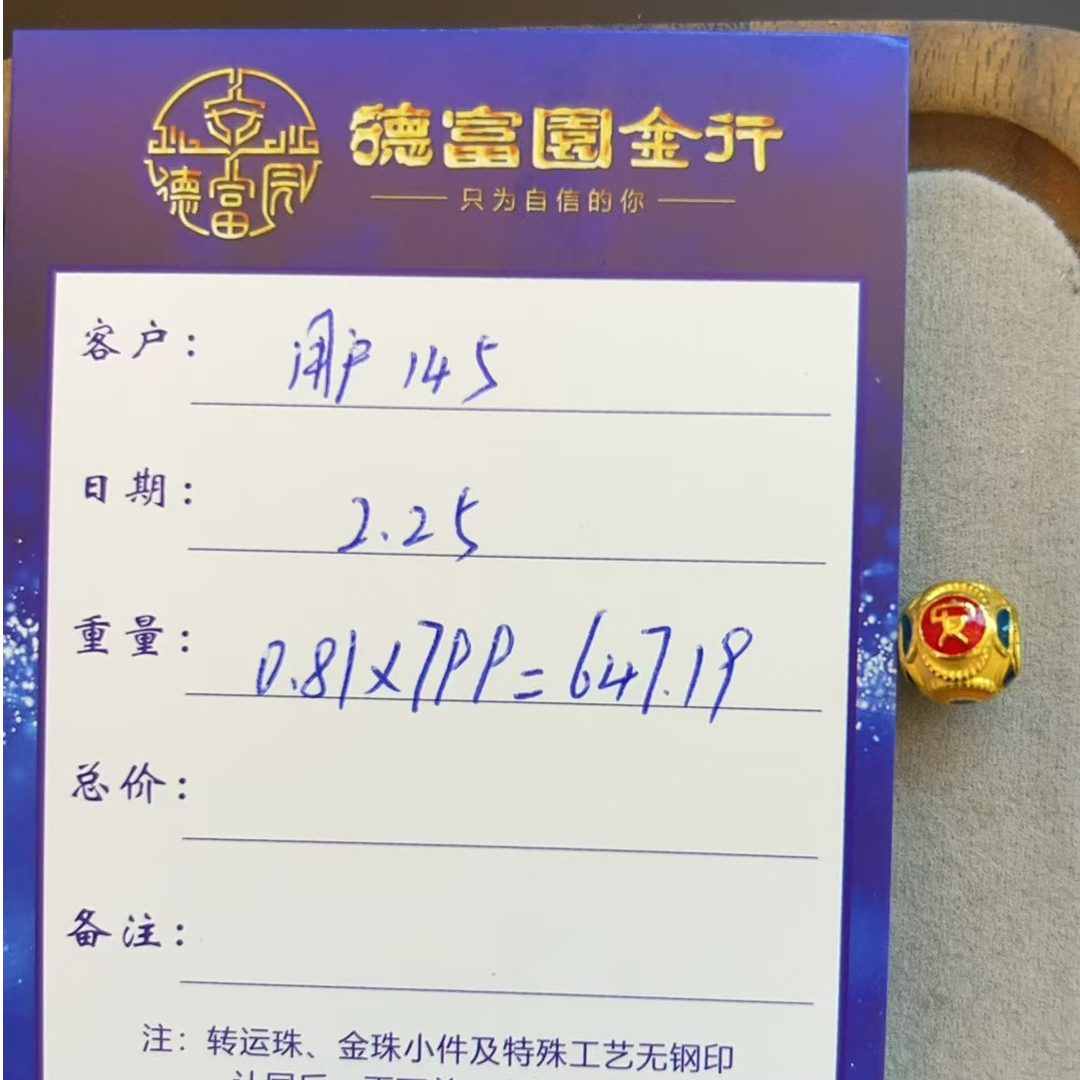 德富園金行
德富园
只为自信的你
客户： 用户 145
日期： 2.25
重量： 0.81×799=647.19
总价：
备注：
注：转运珠、金珠小件及特殊工艺无钢印